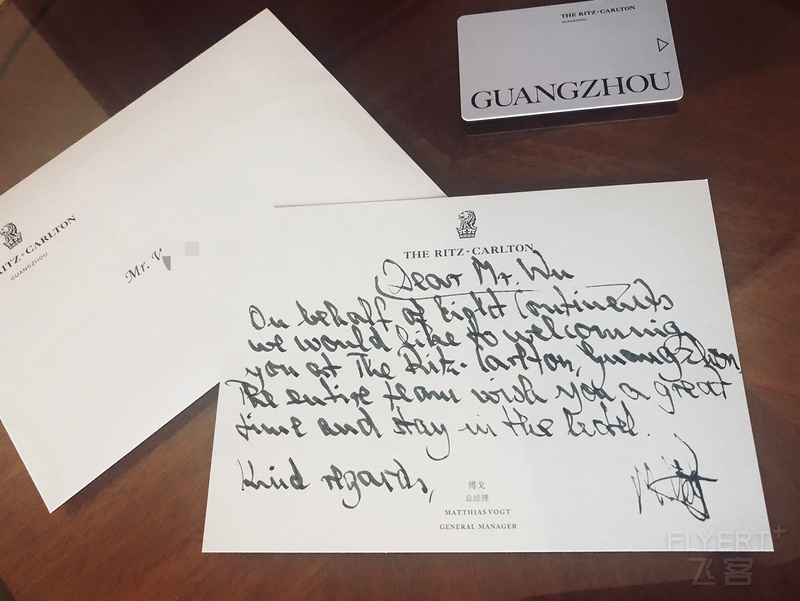 THE RITZ-CARLTON
GUANGZHOU
GUANGZHOU
RITZ-CARLTON
GUANGZHOU
Mr.
THE RITZ-CARLTON
Dear Mr. Wu
On behalf of Eight Continents
we would like to welcoming
you at The Ritz-Carlton, Guangzhou,
The entire team wish you a great
time and stay in the hotel.
Kind regards,
傅戈
总经理
MATTHIAS VOGT
GENERAL MANAGER
FLYERT+
飞客